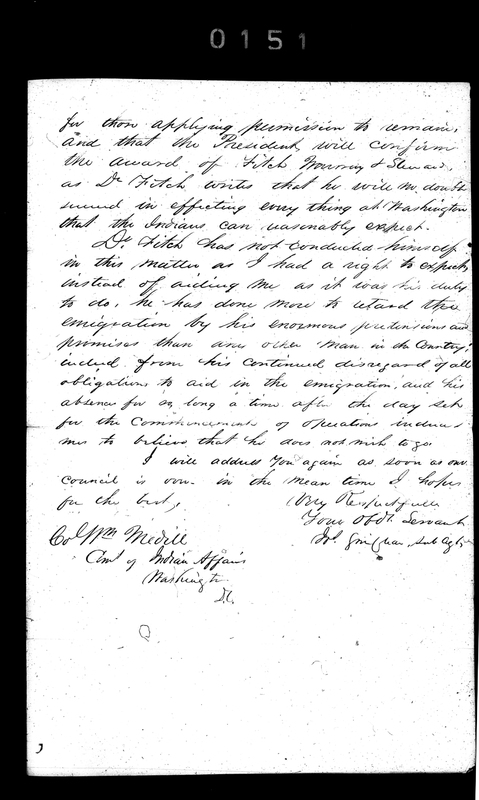 0151
for those applying permission to remain,
and that the President will confirm
the award of Fitch
as Dr Fitch writes that he will no doubt
succeed in effecting every thing at Washington
that the Indians can reasonably expect.
Dr Fitch has not conducted himself
in this matter as I had a right to expect,
instead of aiding me as it was his duty
to do, he has done more to retard the
emigration by his enormous pretensions and
promises than any other man in the Country;
indeed from his continued disregard of all
obligations to aid in the emigration, and his
absence for so long a time after the day set
for the Commencement of operations induces
me to believe that he does not wish to go
I will address you again as soon as our
council is over. in the mean time I hope
for the best,
Very Respectfully
Your Obdt Servant
Sub Agt
Col Wm Medill
Comr of Indian Affairs
Washington
D.C.